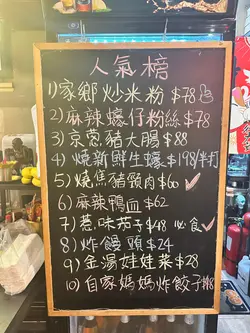 人氣榜
1)家鄉炒米粉 $78
2)麻辣蠔仔粉絲 $78
3)京蔥豬大腸 $88
4)燒新鮮生蠔 $198/半打
5)燒焦豬頸肉 $60
6)麻辣鴨血 $62
7)惹味茄子 $48 必食
8)炸饅頭 $24
9)金湯娃娃菜 $28
10)自家媽媽炸餃子